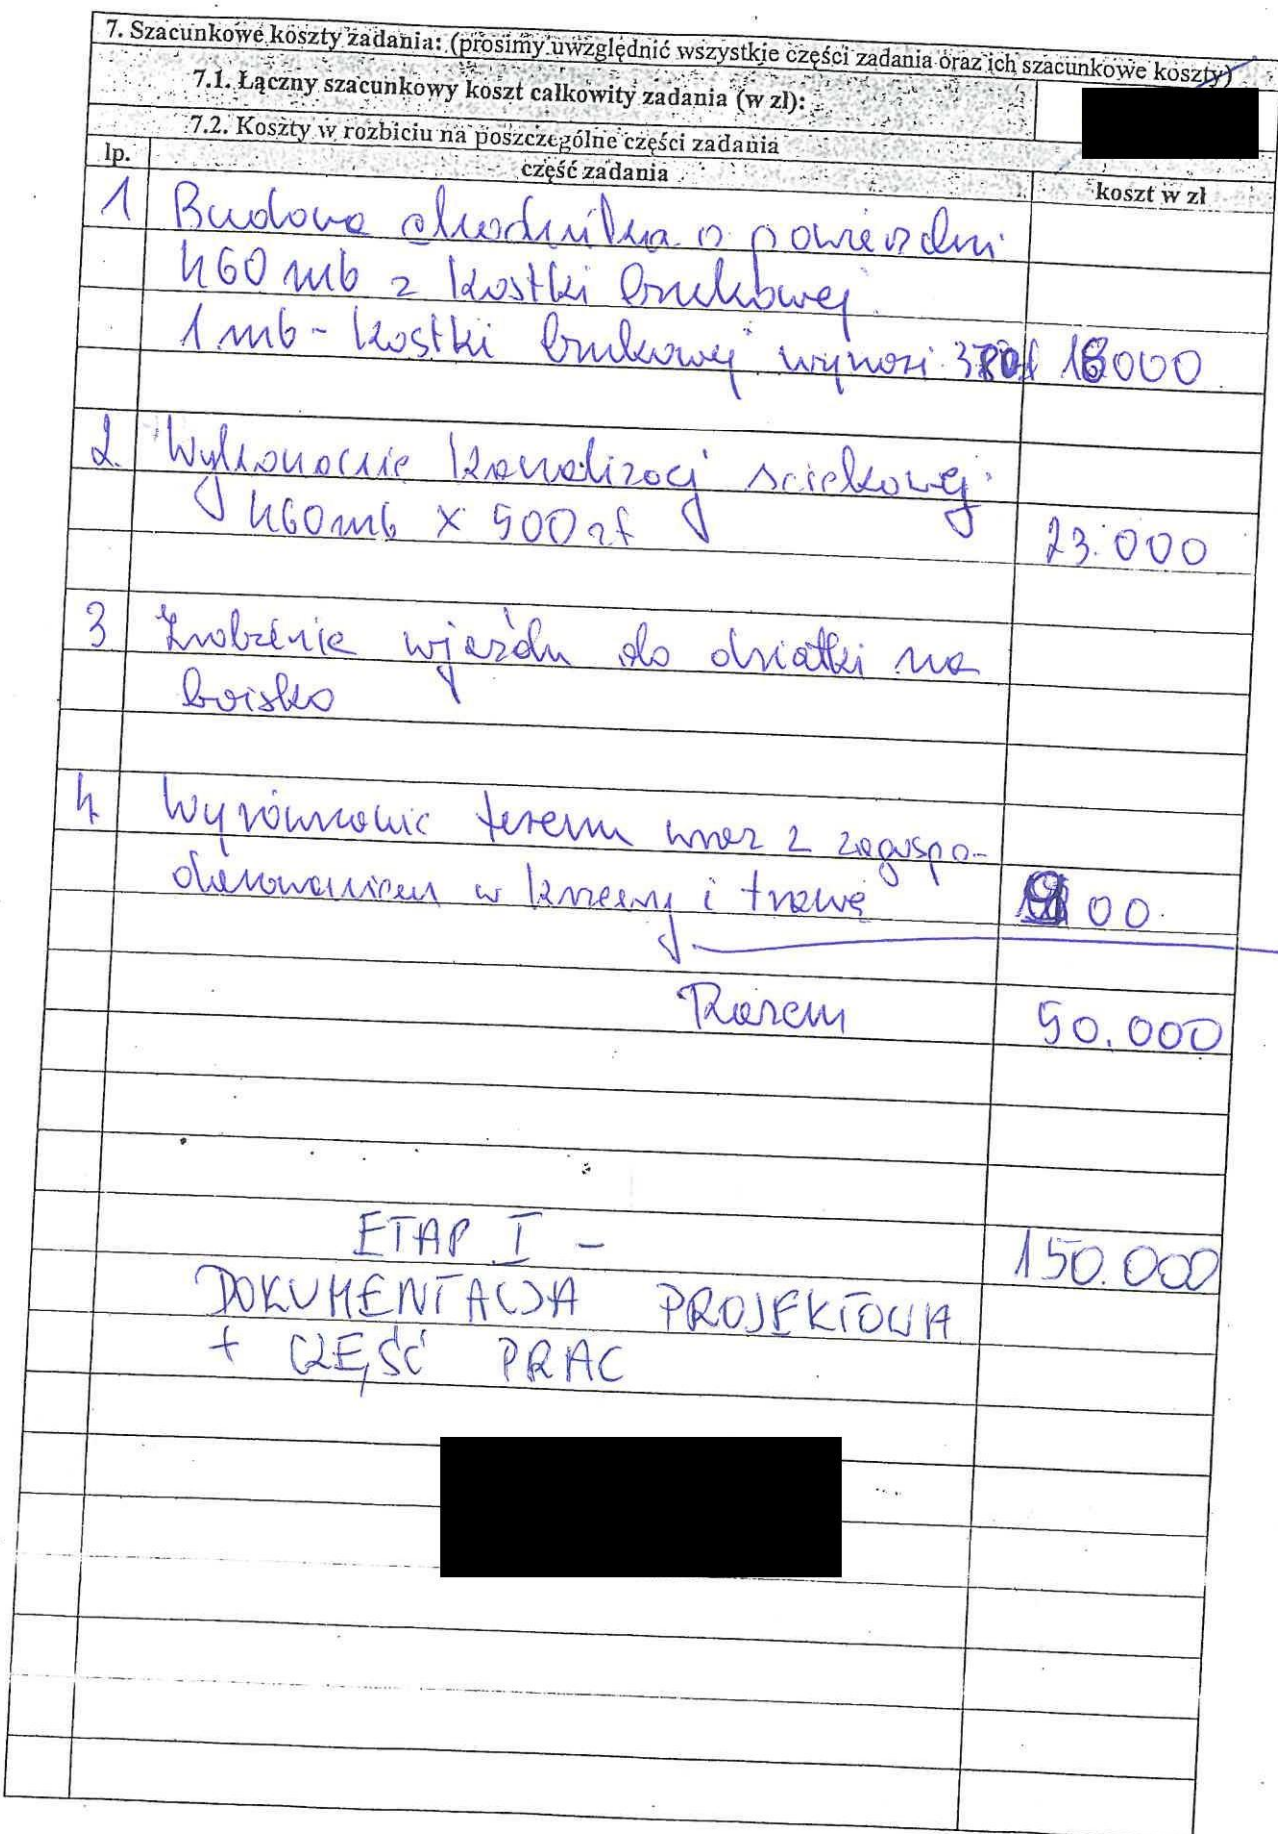 7. Szacunkowe koszty zadania: (prosimy uwzględnić wszystkie części zadania oraz ich szacunkowe koszty)
7.1. Łączny szacunkowy koszt całkowity zadania (w zł):
7.2. Koszty w rozbiciu na poszczególne części zadania
lp. część zadania koszt w zł
1 Budowa chodnika o powierzchni
460 mb z kostki brukowej
1 mb - kostki brukowej wynosi
2. Wykonanie kanalizacj sciekowej
460 mb x 500 zł 23.000
3 Zrobienie wjazdu do działki na
boisko
4 Wyrównanie terenu wraz z zagospo-
darowaniem w krzewy i trawę
Razem 50.000
ETAP I - 150.000
DOKUMENTACJA PROJEKTOWA
+ CZĘŚĆ PRAC